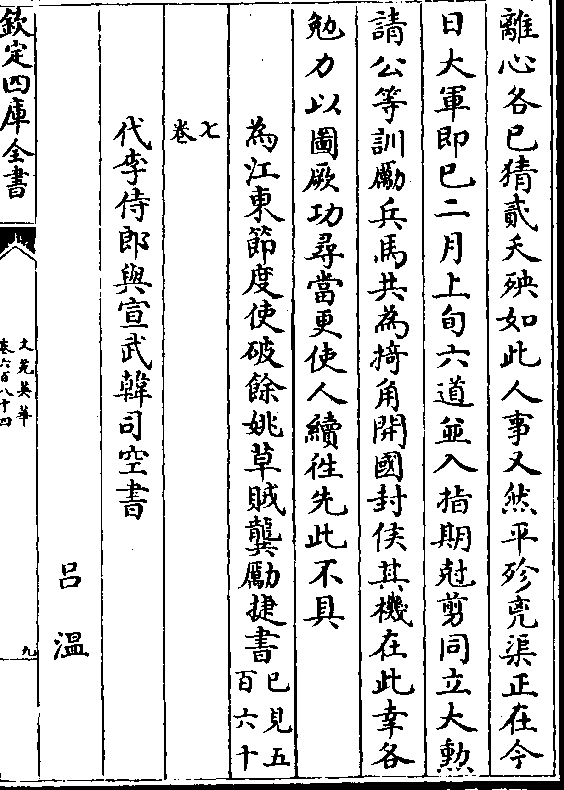 離心各已猜貳天殃如此人事又然平殄兇渠正在今
日大軍即已二月上旬六道並入指期尅剪同立大勲
請公等訓勵兵馬共為掎角開國封侯其機在此幸各
勉力以圖厥功尋當更使人續徃先此不具
為江東節度使破餘姚草賊龔厲捷書已見五百六十
七卷
代李侍郎與宣武韓司空書
呂溫
欽定四庫全書
文苑英華
卷六百八十四
九